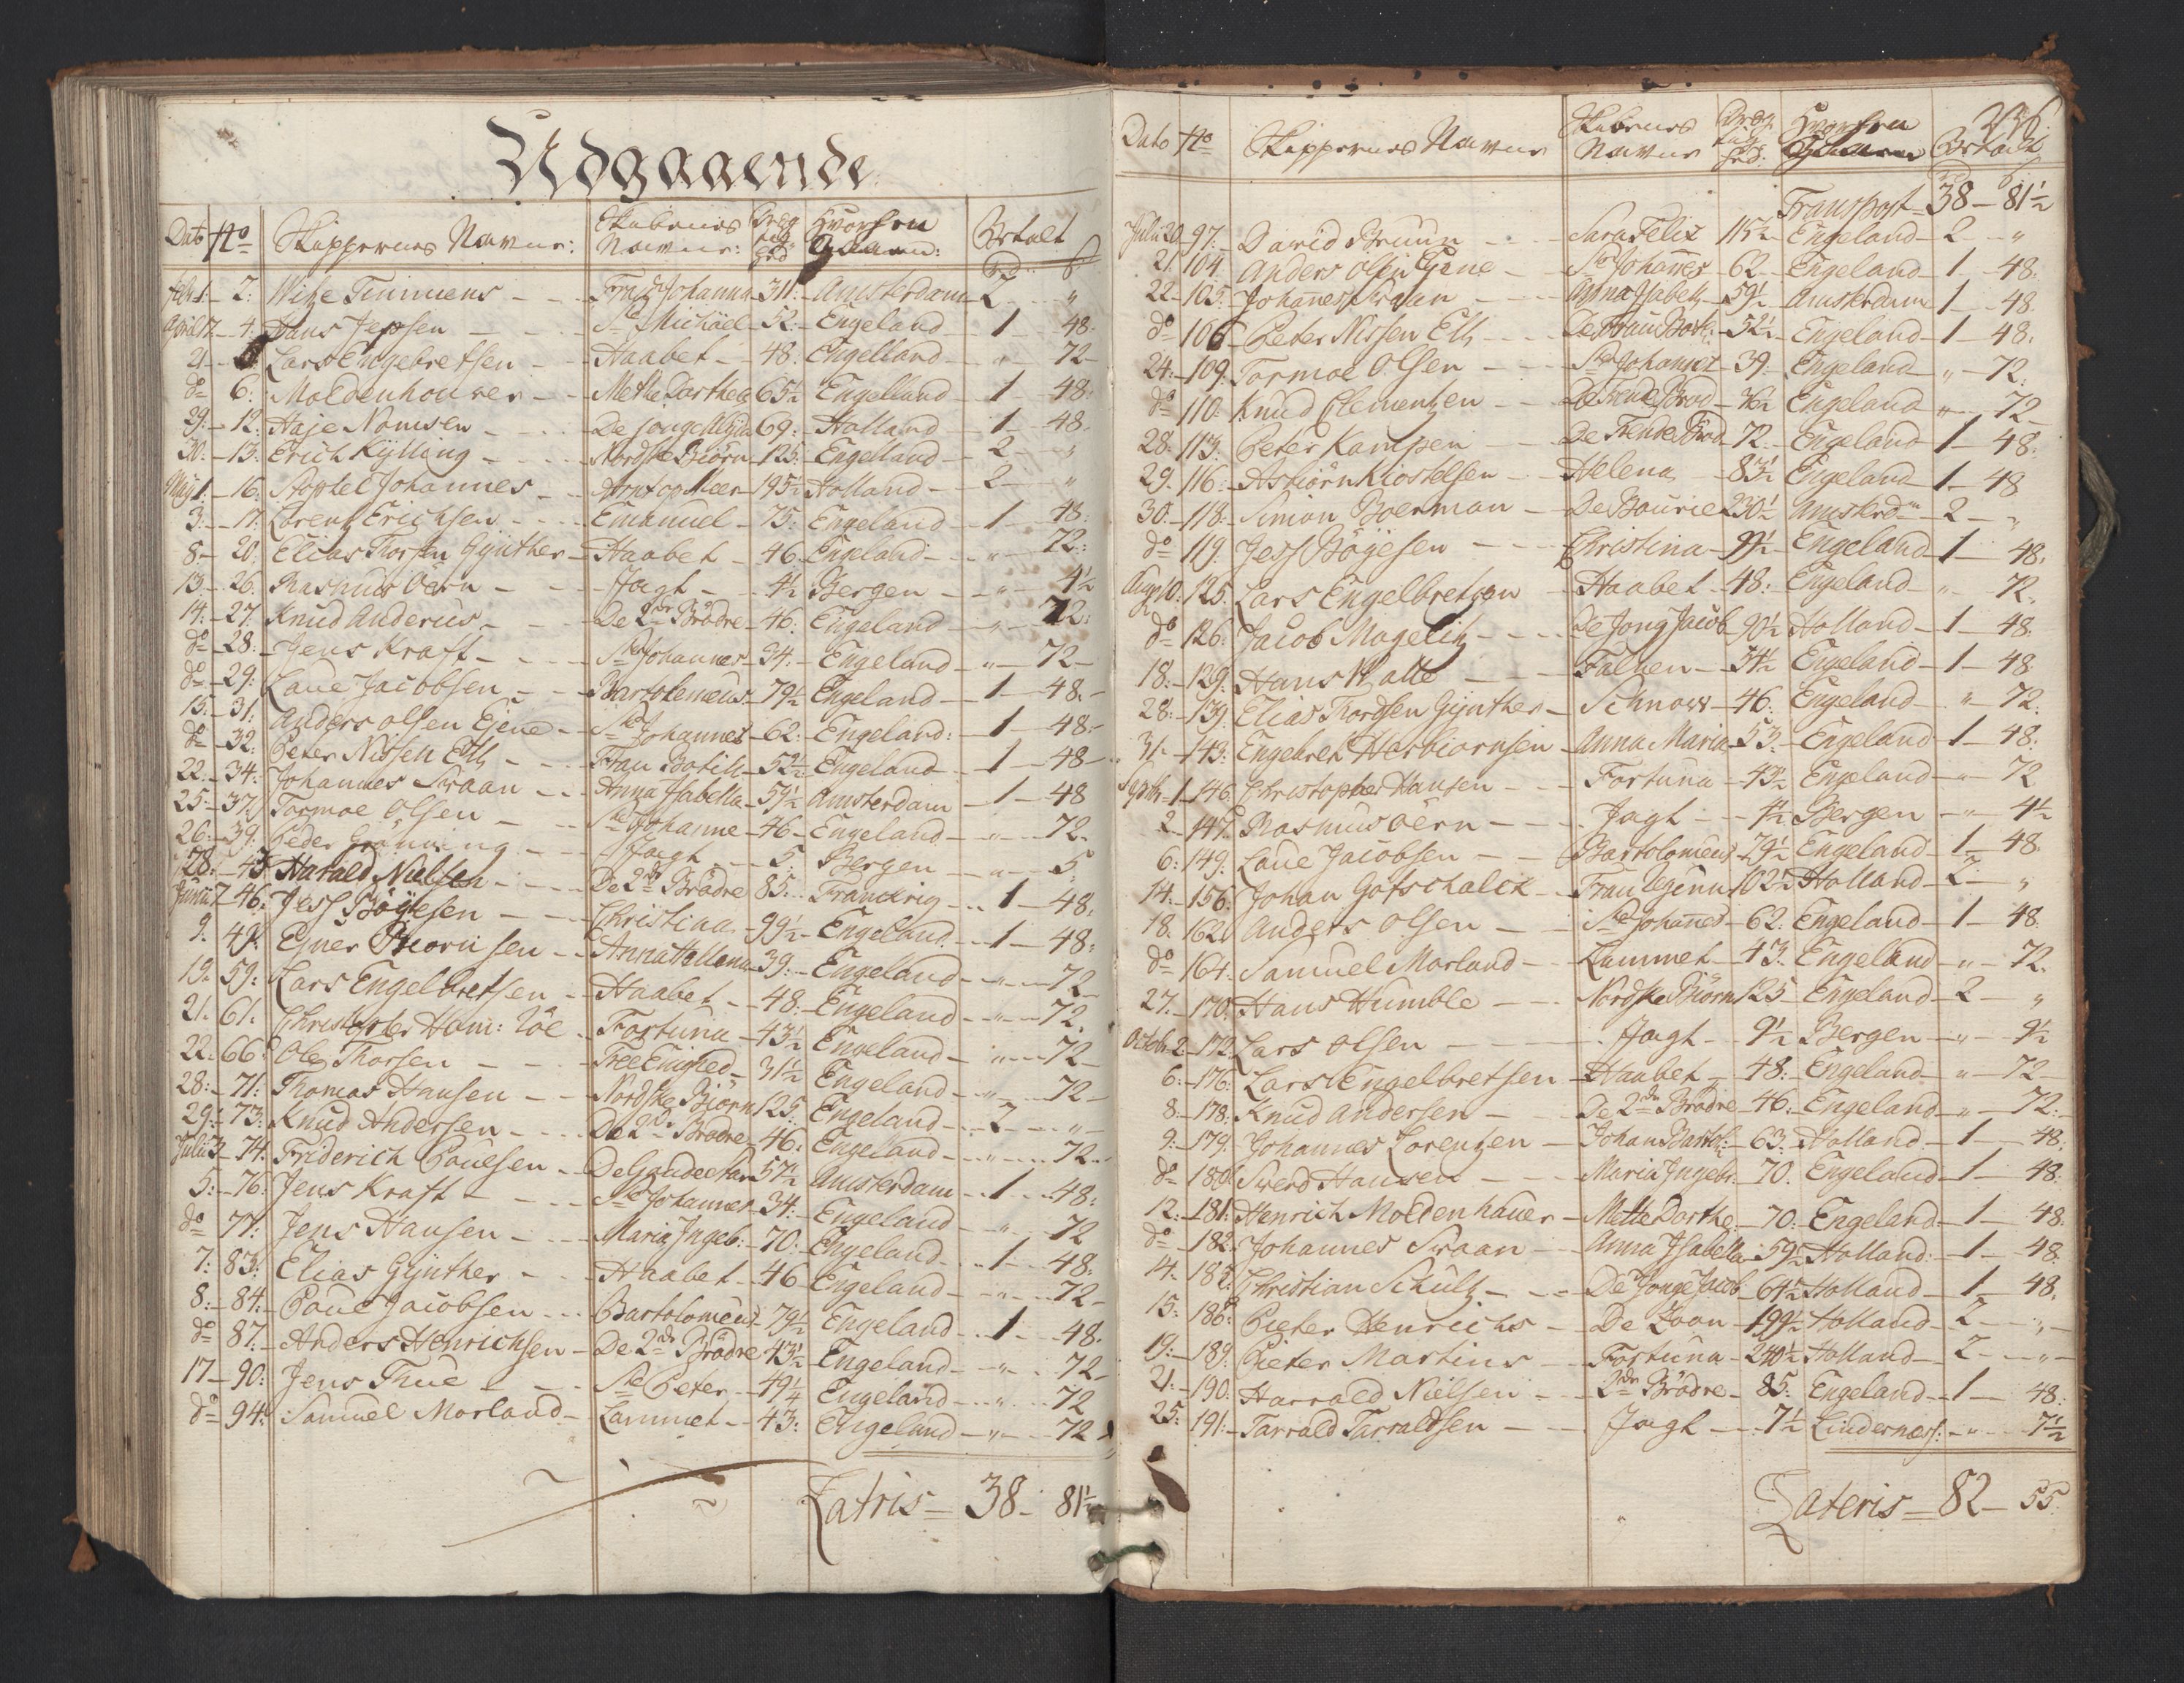 Udgaaende
Dato No Skippernes Navne: Skibenes Navne: Dræg tig hed Hvorhen Betalt
Rd ß
Febr 1 - 2: Witze Timmens - - Frau Johanna 311: - Amsterdam 2 - "
April 17 - 4: Hans Jepsen - - St Michäel - 52: - Engeland - 1 - 48:
21 - Lars Engebretsen - Haabet - 48: Engelland - " - 72
do - 6: Moldenhouwer - - Mette Dorthea 65½ Engelland - 1 - 48:
29: - 12: Haje Nomsen - - De jonge 69: - Holland - 1 - 48.
30: - 13: Erich Kylling - - Nordske Biörn - 125: Engelland - 2 - "
Maj 1: - 16: Stoptel Johannes - - 195½ Holland - 2 - "
3: - 17: Lorentz Erichsen - - Emanuel - 75: Engeland - 1 - 48:
8: - 20: Elias Thorsen Gynther - Haabet - 46 Engeland - " - 72:
13: - 26: Rasmus Öërn - - Jagt - 4½ Bergen - " - 4½
14: - 27: Knud Anderius - - De 2de Brödre - 46: Engeland - " - 72:
do - 28: Jens Kraft - - Ste Johannes - 34: - Engeland - " - 72 -
do - 29: Laue Jacobsen - - Bartolemeus - 79½ Engeland - 1 - 48. -
15: - 31: Anders Olsen Ejene - Ste Johannes - 62: - Engeland: - 1 - 48: -
do - 32: Peter Nissen Etz - - Frau Botill - 52½ Engeland - 1 - 48 -
22: - 34: Johannes Swaan - - Anna Isabella - 59½ Amsterdam - 1 - 48
25: - 37: Tormoe Olsen - - Ste Johanne - 46 - Engeland - " - 72.
26: - 39: Peder Grönning - - Jagt - 5. Bergen - " - 5.
28: - 43 Harald Nielsen - - De 2de Brödre 85: - Franckrig - 1 - 48.
Junii 7 - 46: Jess Böyesen - - Christina - 99½ - Engeland - 1 - 48:
9. 49: Ejner Biörnsen - - Anna Hellena 39: - Engeland - " - 72
19: 59: Lars Engelbretsen - Haabet - 48: Engeland - " - 72.
21. 61: Christopher Han: - Fortuna - 43½ Engeland - " - 72 -
22: 66: Ole Thorsen - - Eenighed - 31½ Engeland - " - 72 -
28: - 71: Thomas Hansen - - Nordske Biörn 125: Engeland - 2 - "
29: - 73: Knud Andersen - - De 2de Brödre - 46: Engeland - " - 72 -
Julii 3 - 74: Friderich Pouelsen - 57½ Amsterdam - 1 - 48:
5: - 76: Jens Kraft - - Ste Johannes - 34: - Engeland - " - 72
do - 77: Jens Hansen - - Maria Ingeb: - 70: - Engeland - 1 - 48:
7: 83: Elias Gynther - - Haabet - 46 Engeland - " - 72 -
8: - 84: Laue Jacobsen - - Bartolomeus - 79½ Engeland - 1 - 48.
do - 87: - Anders Henrichsen - De 2de Brödre 43½ Engeland - " - 72 -
17 - 90: Jens Thue - - Ste Peter - 49¼ Engeland - " - 72
do 94: Samuel Morland - Lammet - 43: Engeland - " - 72
Latris = 38 - 81½
Dato No Skippernes Navne Skibenes Navne Dræg tig hed: Hvorhen Betalt
Transport = 38 - 81½
Julii 20 - 97: - David Bruun - - Sara Felix 115½ Engeland - 2 - "
21. 104. Anders Olsen Ejene - Ste Johannes - 62 - Engeland - 1 - 48.
22 - 105. Johannes Swaan - - Anna Isabell - 59½ Amsterdam 1 - 48.
do - 106 Peter Nissen Etz - - De Frau Botel: - 52½ Engeland - 1 - 48.
24: - 109: Tormoe Olsen - - Ste Johannes - 39. Engeland - " - 72.
do - 110. Knud Clementzen - - De Trende Bröd - 36½ Engeland - " - 72
28 - 113. Peter Kampen - - De Trende Bröd 72. - Engeland 1 - 48.
29. 116: - Asbiörn Kiostelsen - Helena - 83½ Engeland 1 - 48
30. - 118: - Simon Boerman - De Bourie 230½ Amsterd.m - 2 - "
do - 119. Jess Böyesen - - Christina - 99½ - Engeland 1 - 48.
Aug: 10: 125. Lars Engelbretsen - Haabet - 48: Engeland - " - 72.
do - 126: Jacob Magelitz - - De Jong Jacob - 90½ Holland - 1 - 48.
18: - 129: Hans Watte - - Falken - 34½ Engeland - 1 - 48
28: - 139. Elias Thordsen Gynther - Schnow - 46. Engeland - " 72.
31 - 143: Engebret Herbiörnsen - Anna Maria - 53: - Engeland 1 - 48:
Septbr - 1 146. Christopher Hansen - - Fortuna - 43½ Engeland - " - 72
2 - 147. Rasmus Öërn - - Jagt - 4½ Bergen - " - 4½
6: - 149. Laue Jacobsen - - Bartolomeus - 79½ Engeland - 1 - 48.
14. - 156. Johan Gotschalck - Frau 102½ Holland - 2 - "
18. 162. Anders Olsen - - Ste Johannes - 62: Engeland - 1 - 48.
do - 164. Samuel Morland - Lammet - 43. Engeland - " - 72.
27. - 170. Hans Humble - - Nordske Biörn 125 - Engeland - 2 - "
Octobr. 2 - 172. Lars Olsen - - Jagt - 9½ Bergen - " - 9½
6: - 176: Lars Engelbretsen - Haabet - 48: Engeland - " - 72
8: - 178. Knud Andersen - De 2de Brödre - 46: - Engeland - " - 72. -
9: - 179: Johannes Lorentzen - Johan Bartol: - 63: Holland - 1 - 48:
do - 180: Swerd Hansen - - Maria Ingebr. - 70. Engeland - 1 - 48.
12. - 181: Henrich Moldenhauer - Mette Dorthe - 70: - Engeland - 1 - 48.
do - 182: Johannes Swaan - - Anna Isabella 59½ Holland: - 1 - 48.
14. 185. Christian Schultz - - De Jonge Jacob - 64½ Holland - 1 - 48.
15: 186: Pieter Henrichs - - De Zoon - 199½ Holland - 2 - "
19: - 189: Pieter Martins - Fortuna - 240½ Holland - 2 - "
21. - 190. Harrald Nielsen - - 2de Brödre - 85: Engeland - 1 - 48:
25: 191. - Tarrald Tarraldsen - - Jagt - 7½ Lindernæss: - " - 7½
Lateris = 82 - 55.